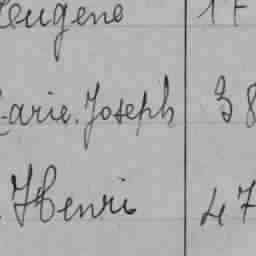 Eugene 17
Marie.Joseph 38
Henri 47